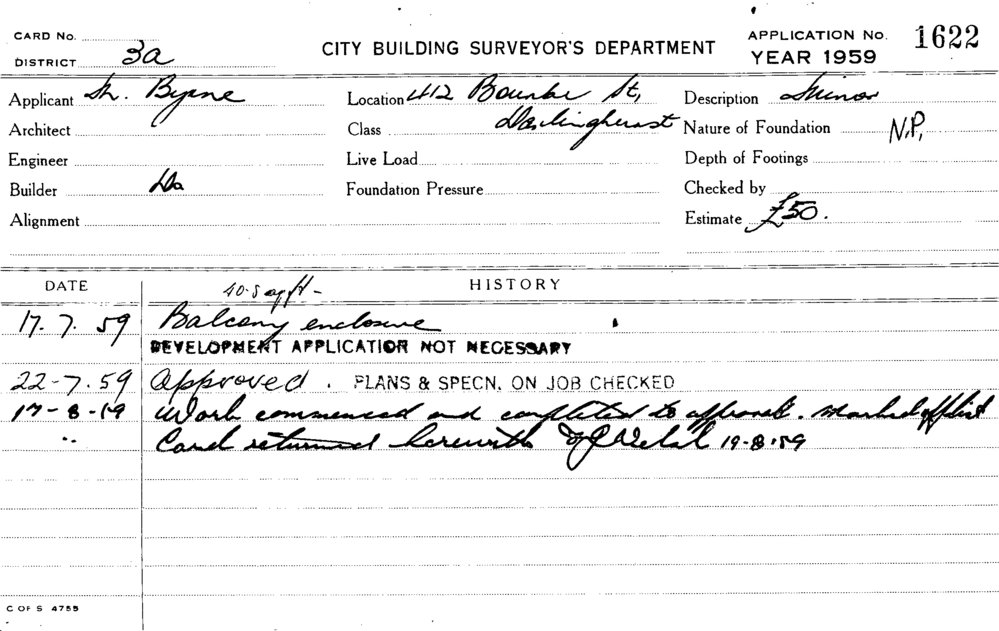 CARD No.
DISTRICT 3a
CITY BUILDING SURVEYOR'S DEPARTMENT
APPLICATION No. 1622
YEAR 1959
Applicant Byrne
Location 412 Bourke St,
Description Minor
Architect
Class Darlinghurst
Nature of Foundation N.P.
Engineer
Live Load
Depth of Footings
Builder Do
Foundation Pressure
Checked by
Alignment
Estimate £50.
DATE
HISTORY
40.5 sq ft -
17.7.59 Balcony enclosure
DEVELOPMENT APPLICATION NOT NECESSARY
22-7.59 Approved . PLANS & SPECN. ON JOB CHECKED
17-8-59 Work commenced and completed to approval. Marked off list
" Card returned herewith 19-8-59
C OF S 4755